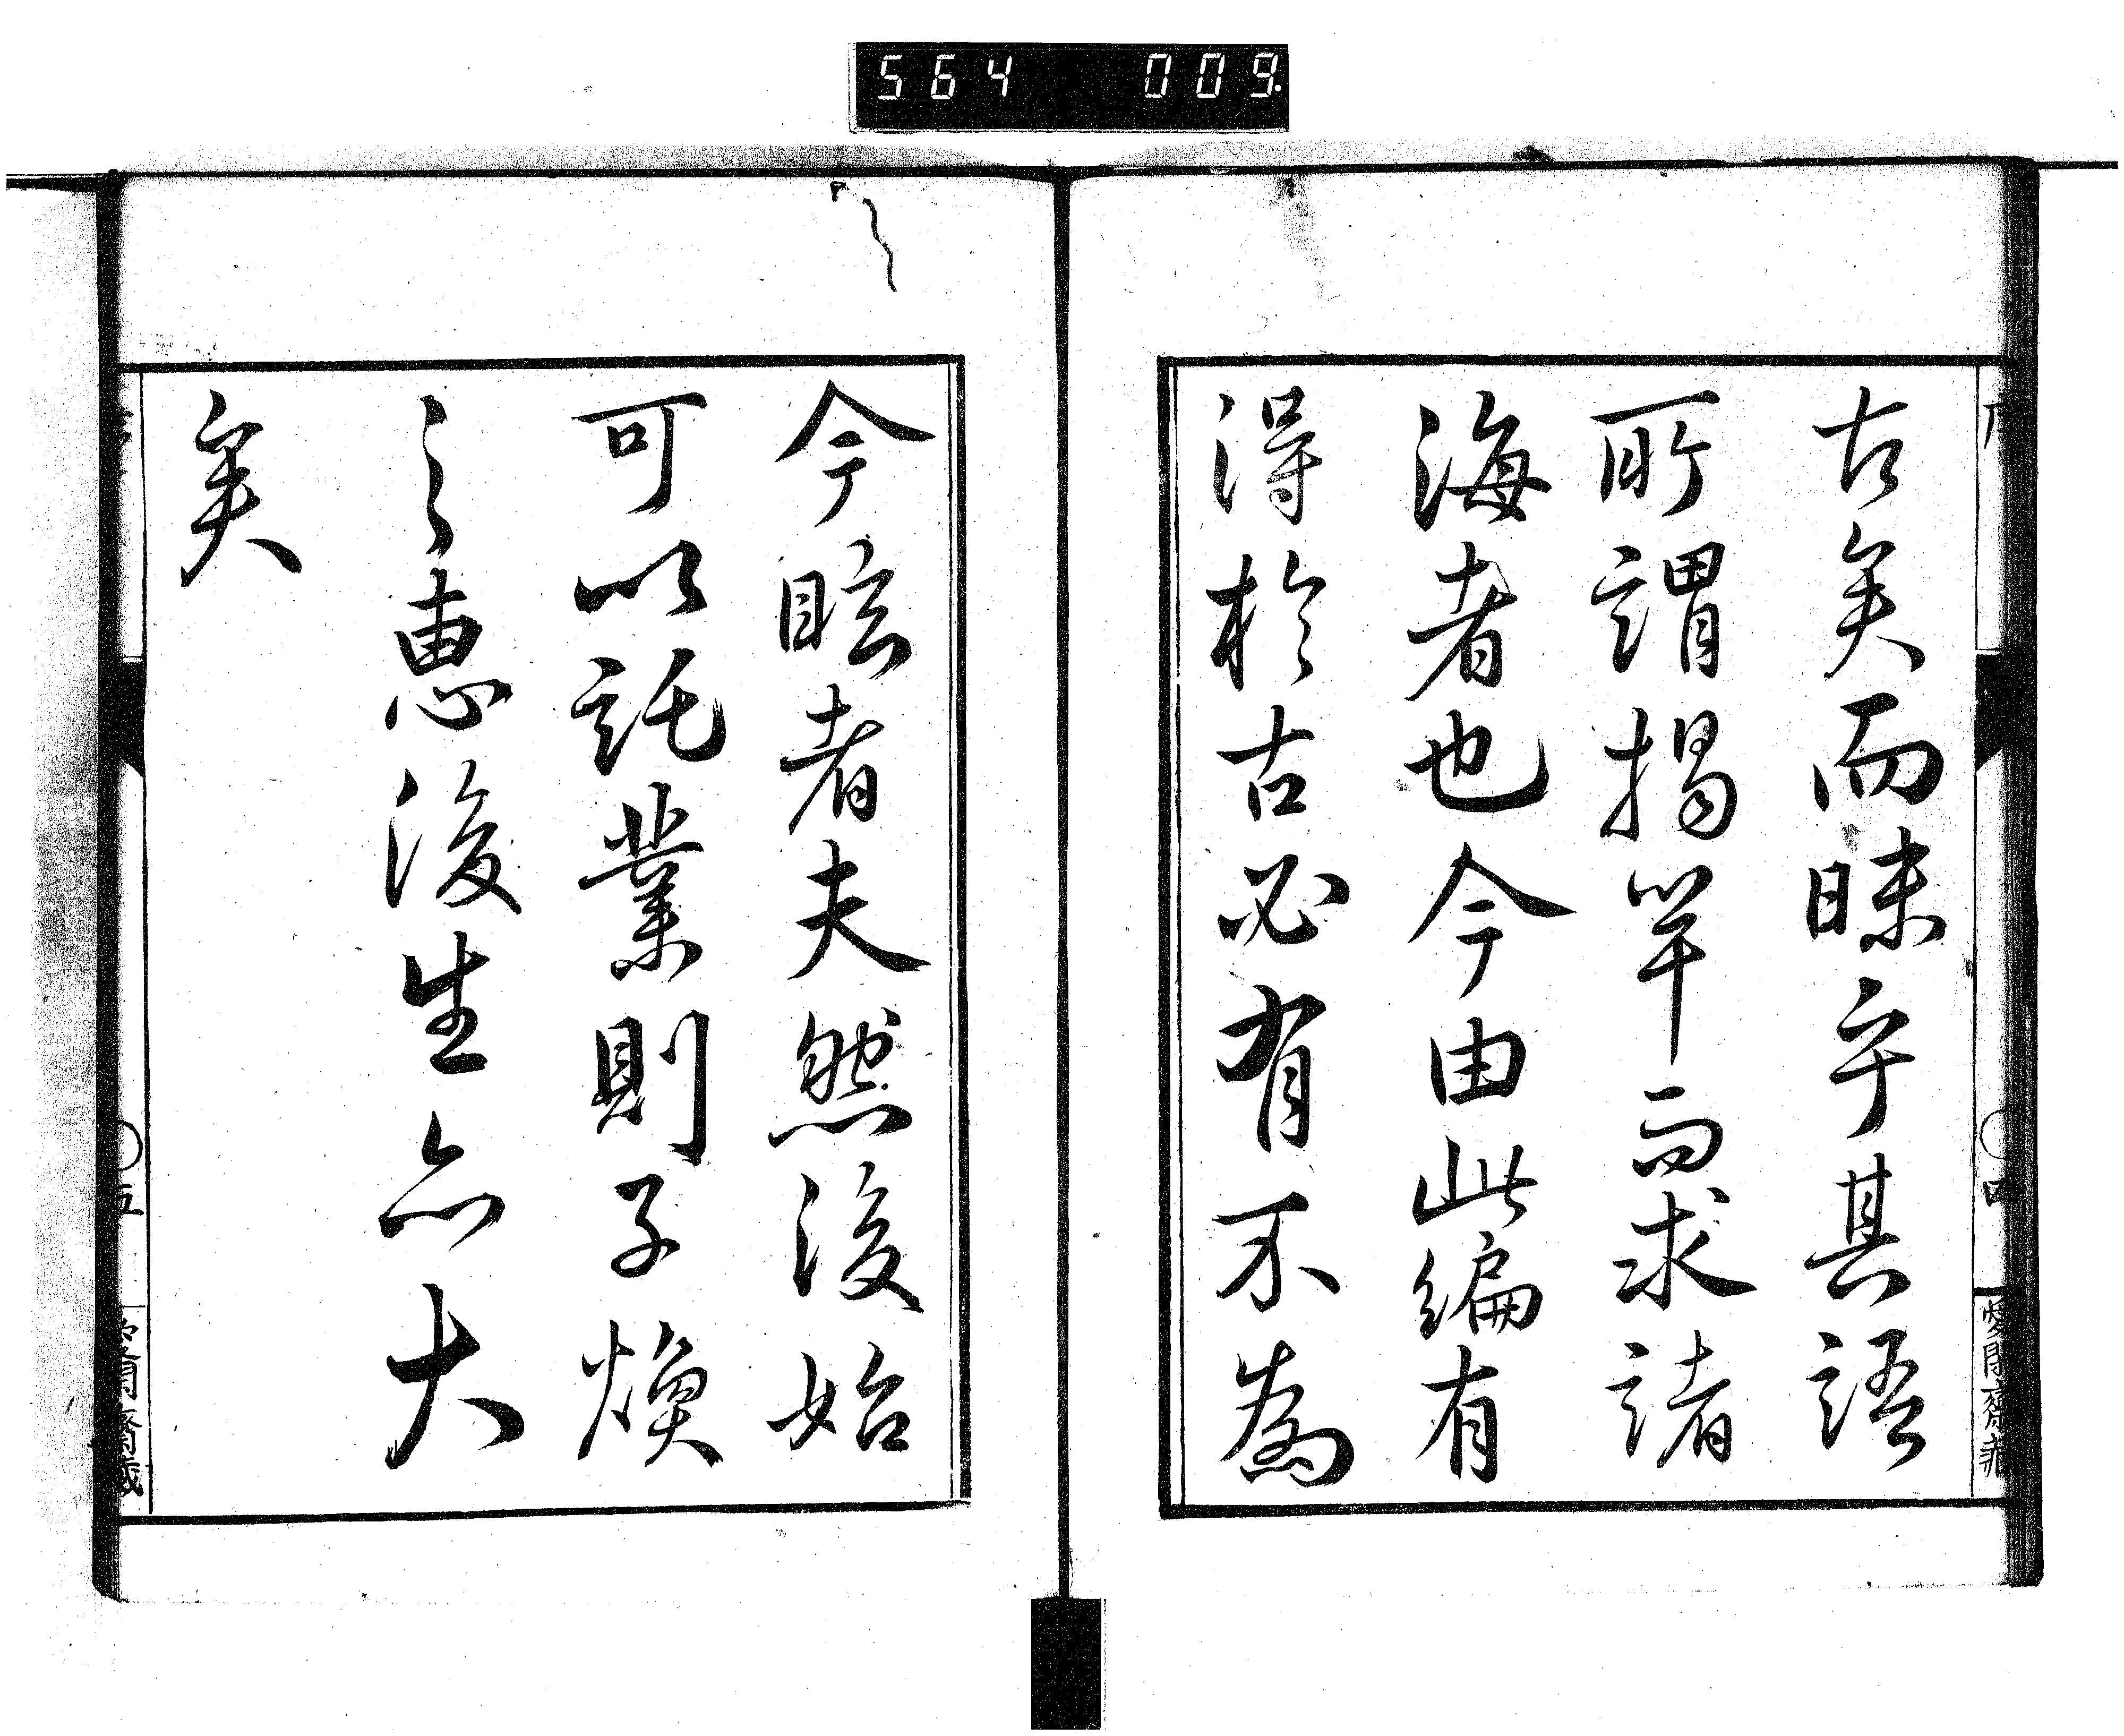 564 009
古矣而昧乎其語
所謂揭竿而求諸
海者也今由此編有
得於古必有不為
今眩者夫然後始
可以託業則子煥
之惠後生亦大
矣
四
五